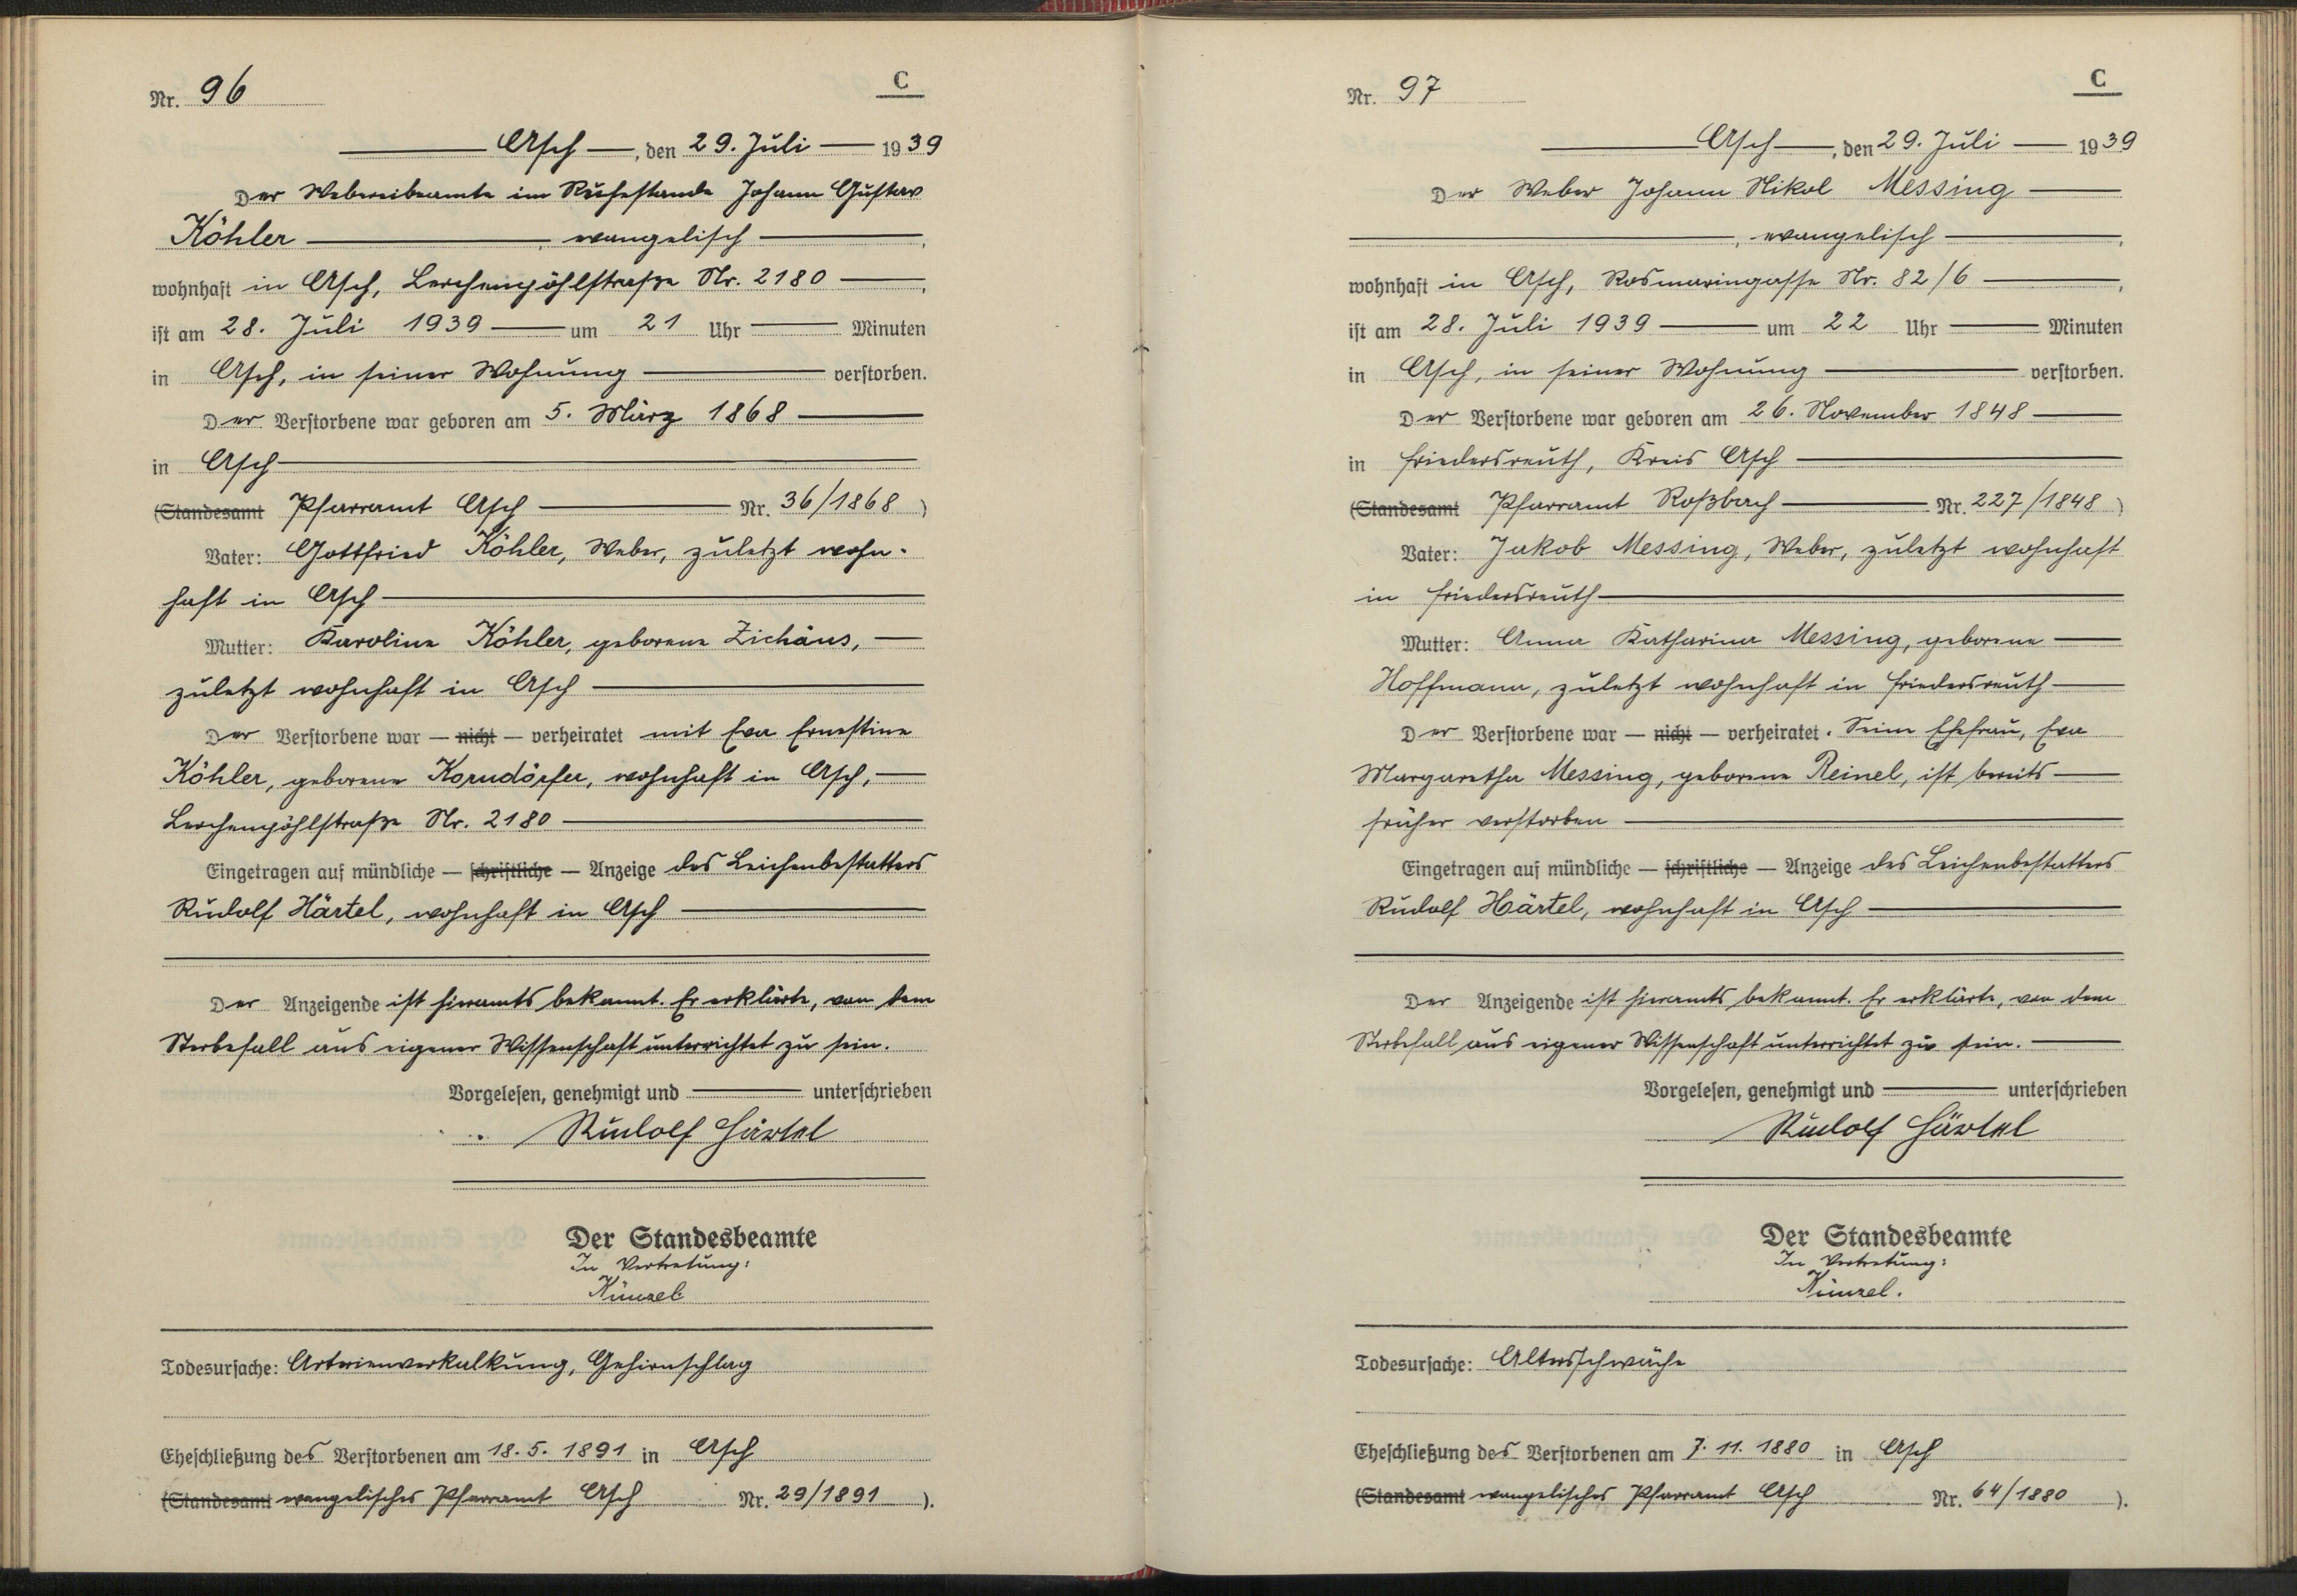 Nr. 96
C
Asch, den 29. Juli 1939
Der Webereibeamte im Ruhestande Johann Gustav
Köhler, evangelisch,
wohnhaft in Asch, Lerchenpöhlstraße Nr. 2180,
ist am 28. Juli 1939 um 21 Uhr Minuten
in Asch, in seiner Wohnung verstorben.
Der Verstorbene war geboren am 5. März 1868
in Asch
(Standesamt Pfarramt Asch Nr. 36/1868)
Vater: Gottfried Köhler, Weber, zuletzt wohn-
haft in Asch
Mutter: Karoline Köhler, geborene Zichäus,
zuletzt wohnhaft in Asch
Der Verstorbene war — nicht — verheiratet mit Eva Ernestine
Köhler, geborene Korndörfer, wohnhaft in Asch,
Lerchenpöhlstraße Nr. 2180
Eingetragen auf mündliche — schriftliche — Anzeige des Leichenbestatters
Rudolf Härtel, wohnhaft in Asch
Der Anzeigende ist hieramts bekannt. Er erklärte, von dem
Sterbefall aus eigener Wissenschaft unterrichtet zu sein.
Vorgelesen, genehmigt und unterschrieben
Rudolf Härtel
Der Standesbeamte
In Vertretung:
Künzel
Todesursache: Arterienverkalkung, Gehirnschlag
Eheschließung des Verstorbenen am 18.5.1891 in Asch
(Standesamt evangelisches Pfarramt Asch Nr. 29/1891).
Nr. 97
C
Asch, den 29. Juli 1939
Der Weber Johann Nikol Messing
, evangelisch,
wohnhaft in Asch, Rosmaringasse Nr. 82/6,
ist am 28. Juli 1939 um 22 Uhr Minuten
in Asch, in seiner Wohnung verstorben.
Der Verstorbene war geboren am 26. November 1848
in Friedersreuth, Kreis Asch
(Standesamt Pfarramt Roßbach Nr. 227/1848)
Vater: Jakob Messing, Weber, zuletzt wohnhaft
in Friedersreuth
Mutter: Anna Katharina Messing, geborene
Hoffmann, zuletzt wohnhaft in Friedersreuth
Der Verstorbene war — nicht — verheiratet. Seine Ehefrau, Eva
Margaretha Messing, geborene Reinel, ist bereits
früher verstorben
Eingetragen auf mündliche — schriftliche — Anzeige des Leichenbestatters
Rudolf Härtel, wohnhaft in Asch
Der Anzeigende ist hieramts bekannt. Er erklärte, von dem
Sterbefall aus eigener Wissenschaft unterrichtet zu sein.
Vorgelesen, genehmigt und unterschrieben
Rudolf Härtel
Der Standesbeamte
In Vertretung:
Künzel.
Todesursache: Altersschwäche
Eheschließung des Verstorbenen am 7.11.1880 in Asch
(Standesamt evangelisches Pfarramt Asch Nr. 64/1880).